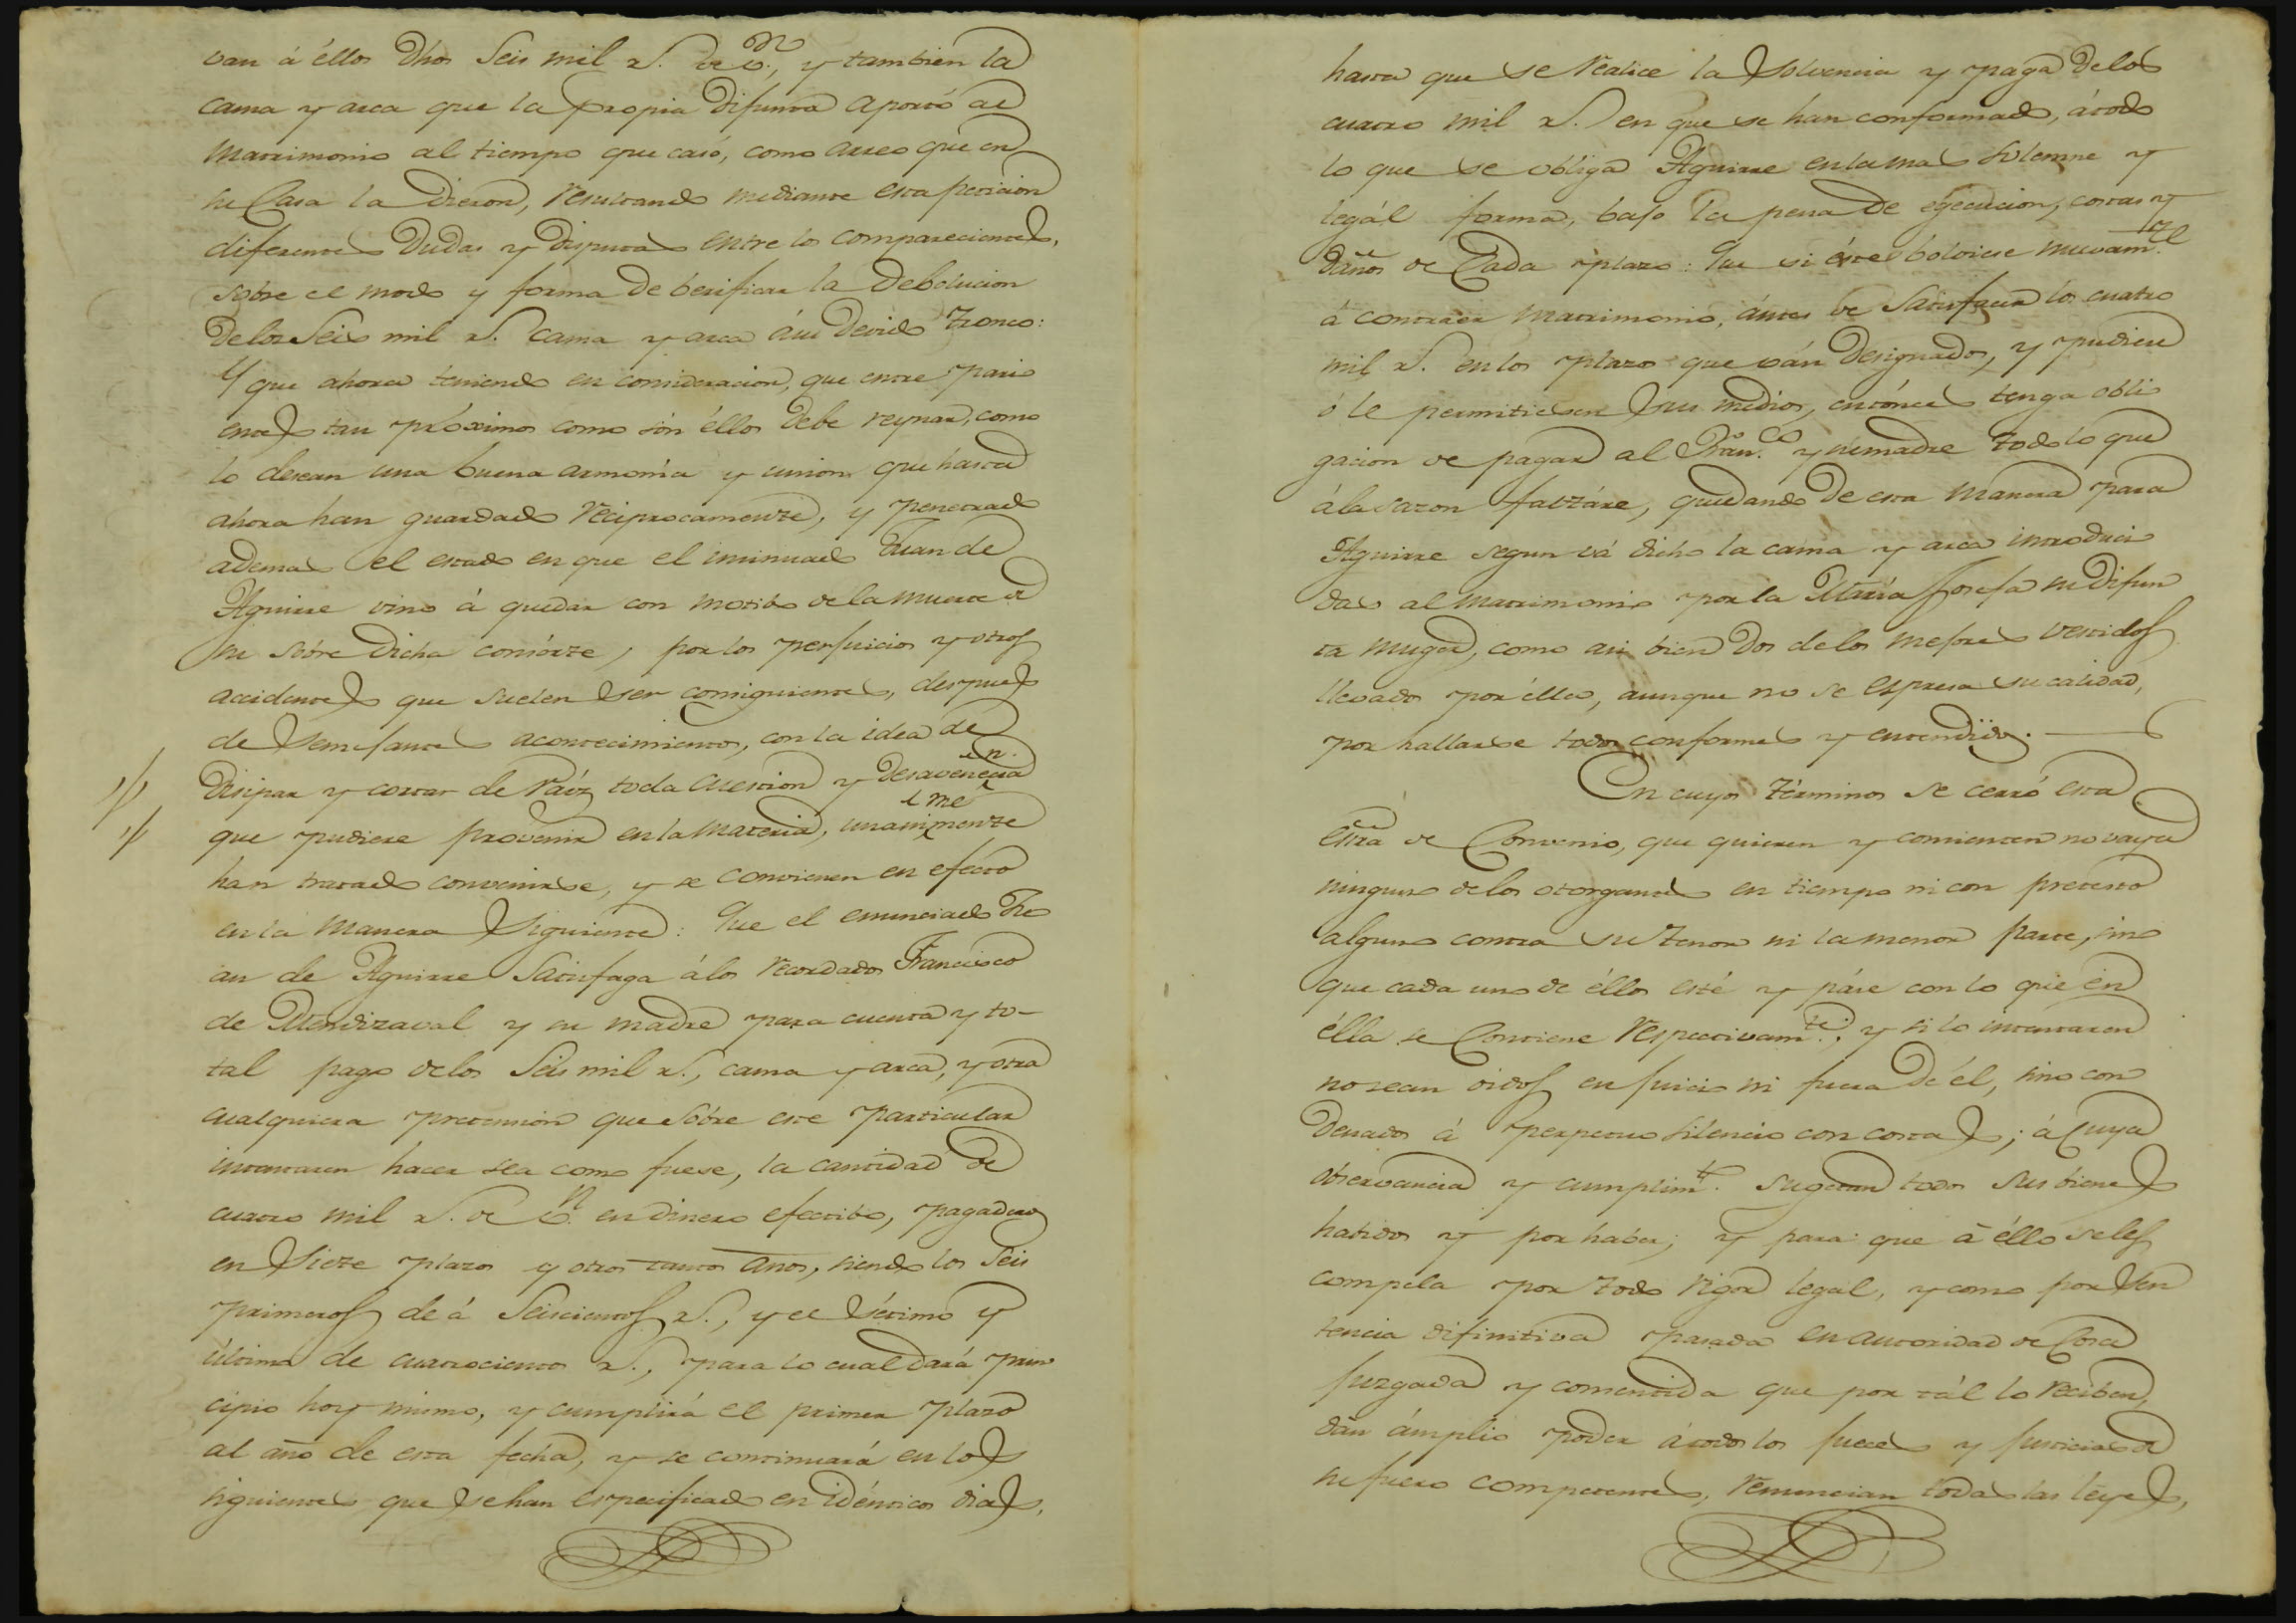 van á éllos dhos Seis mil r.s de v.on, y tambien la
cama y arca que la propia difunta aportó al
Matrimonio al tiempo que casó, como arreo que en
su Casa la dieron, resultando mediante esta peticion
diferentes dudas y disputas entre los comparecientes,
sobre el modo y forma de berificar la debolucion
de los Seis mil r.s cama y arca á su devido tronco:
Y que ahora teniendo en consideracion, que entre pari
entes tan próximos como són éllos debe reynar, como
lo desean una buena armonía y union que hasta
ahora han guardado reciprocamente, y penetrado
ademas el estado en que el insinuado Juan de
Aguirre vino á quedar con motibo de la muerte de
su sobre dicha consórte, por los perjuicios y otros
accidentes que suelen ser consiguientes, despues
de semejantes acontecimientos, con la idea de
disipar y cortar de raíz toda cuestion y desavenencia
que pudiere provenir en la materia, unanimemente
han tratado convenirse, y se convienen en efecto
en la manera siguiente: Que el enunciado Ju
an de Aguirre Satisfaga á los recordados Francisco
de Mendizaval y su madre para cuenta y to-
tal pago de los Seis mil r.s, cama y arca, y otra
cualquiera pretension que sóbre este particular
intentaren hacer sea como fuese, la cantidad de
cuatro mil r.s de v.n en dinero efectibo, pagaderos
en Siete plazos y otros tantos años, siendo los Seis
primeros de á Seiscientos r.s, y el sétimo y
último de cuatrocientos r.s, para lo cual dará prin
cipio hoy mismo, y cumplirá el primer plazo
al año de esta fecha, y se continuará en los
siguientes que se han especificado en idénticos dias,
hasta que se realice la Solvencia y paga de los
cuatro mil r.s en que se han conformado, á todo
lo que se obliga Aguirre en la mas solemne y
legál forma, bajo la pena de egecucion, costas y
daños de Cada plazo: Que si éste bolviese nuevam.te
á contraer matrimonio, ántes de Satisfacer los cuatro
mil r.s en los plazos que ván designados, y pudiese
ó le permitiesen sus medios, entónces tenga obli
gacion de pagar al Fran.co y su madre todo lo que
á la sazon faltáre, quedando de esta manera para
Aguirre segun vá dicho la cama y arca introduci
das al matrimonio por la María Josefa su difun
ta muger, como asi bien dos de los mejores vestidos
llevados por élla, aunque no se espresa su calidad,
por hallarse todos conformes y entendidos.
En cuyos términos se cerró esta
Esc̃ra de Convenio, que quieren y consienten no vaya
ninguno de los otorgantes en tiempo ni con pretesto
alguno contra su tenor ni la menor parte, sino
que cada uno de éllos esté y páse con lo que en
élla se Contiene respectivam.te, y si lo intentaren
no sean oidos en juicio ni fuera de él, sino con
denados á perpetuo silencio con costas; á cuya
observancia y cumplim.to sugetan todos sus bienes
habidos y por haber; y para que á éllo se les
compela por todo rigor legal, y como por sen
tencia difinitiva pasada en autoridad de Cosa
juzgada y consentida que por tál lo reciben,
dán ámplio poder á todos los jueces y justicias de
su fuero competentes, renuncian todas las leyes,